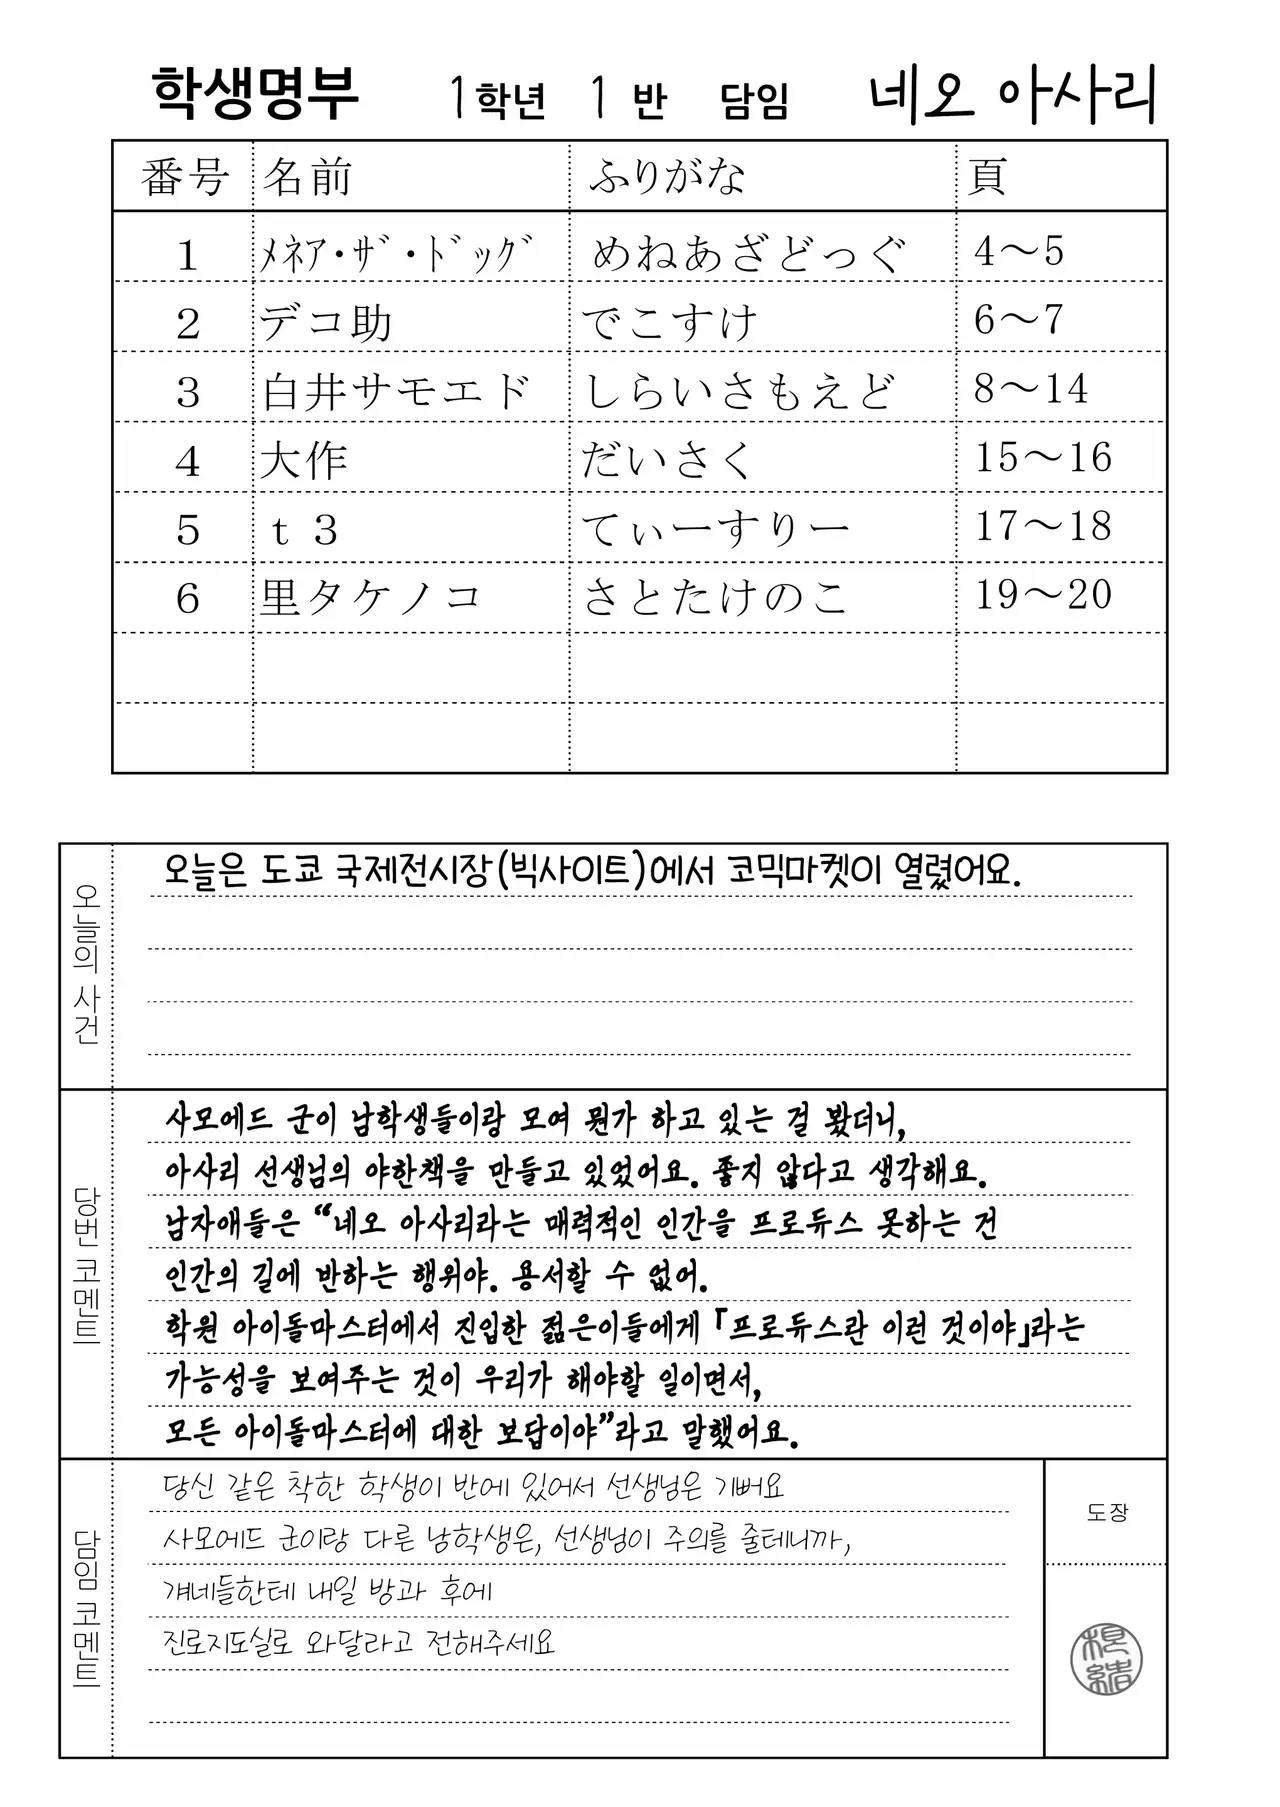 학생명부 1학년 1반 담임 네오 아사리
番号 名前 ふりがな 頁
1 ﾒﾈｱ・ｻﾞ・ﾄﾞｯｸﾞ めねあざどっぐ 4～5
2 デコ助 でこすけ 6～7
3 白井サモエド しらいさもえど 8～14
4 大作 だいさく 15～16
5 ｔ３ てぃーすりー 17～18
6 里タケノコ さとたけのこ 19～20
오늘의 사건
오늘은 도쿄 국제전시장(빅사이트)에서 코믹마켓이 열렸어요.
당번 코멘트
사모에드 군이 남학생들이랑 모여 뭔가 하고 있는 걸 봤더니,
아사리 선생님의 야한책을 만들고 있었어요. 좋지 않다고 생각해요.
남자애들은 “네오 아사리라는 매력적인 인간을 프로듀스 못하는 건
인간의 길에 반하는 행위야. 용서할 수 없어.
학원 아이돌마스터에서 진입한 젊은이들에게 「프로듀스란 이런 것이야」라는
가능성을 보여주는 것이 우리가 해야할 일이면서,
모든 아이돌마스터에 대한 보답이야”라고 말했어요.
담임 코멘트
당신 같은 착한 학생이 반에 있어서 선생님은 기뻐요
사모에드 군이랑 다른 남학생은, 선생님이 주의를 줄테니까,
걔네들한테 내일 방과 후에
진로지도실로 와달라고 전해주세요
도장
根緒